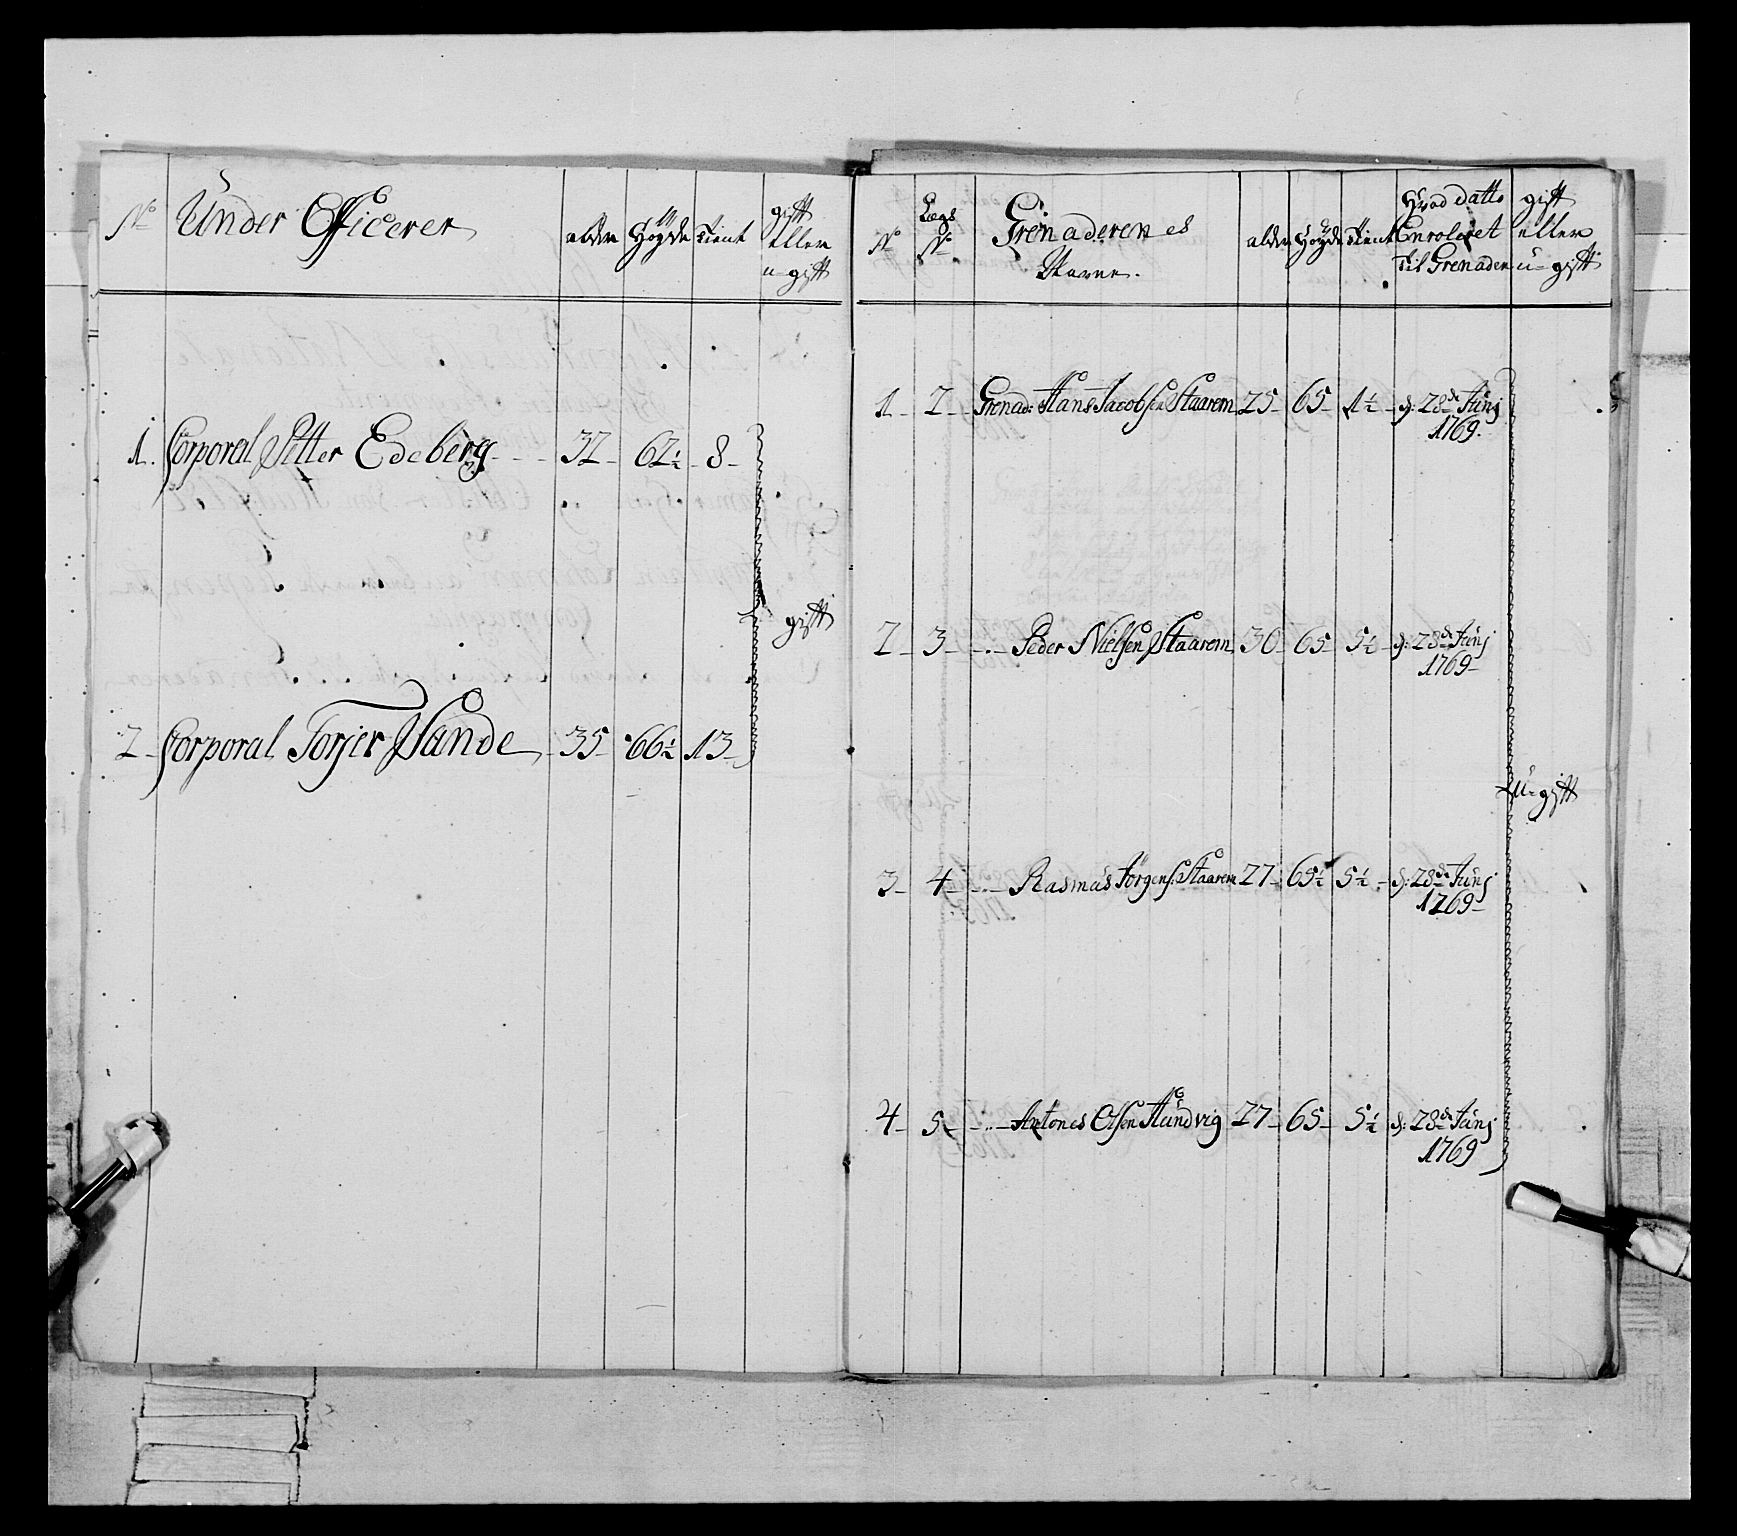 No Under Officerer alder Höyde tient gift eller u-gift
1. Corporal Petter Edeberg 32 62½ 8
gift
2 Corporal Torjer Sande 35 66½ 13
No Lægs No Grenaderenes Navne. alder Höyde tient Hvad datto Enroleret til Grenader gift eller u-gift
1 2 Grenad: Hans Jacobsen Staarem 25 65 1½ d: 28de Junj
1769.
2 3 Peder Nielsen Staarem 30 65 5½ d: 28de Junj
1769
U-gift
3 4 Rasmus Jörgens: Staarem 27 65½ 5½ d: 28de Junj
1769
4 5 Antones Olsen Hundvig 27 65 5½ d: 28de Junj
1769